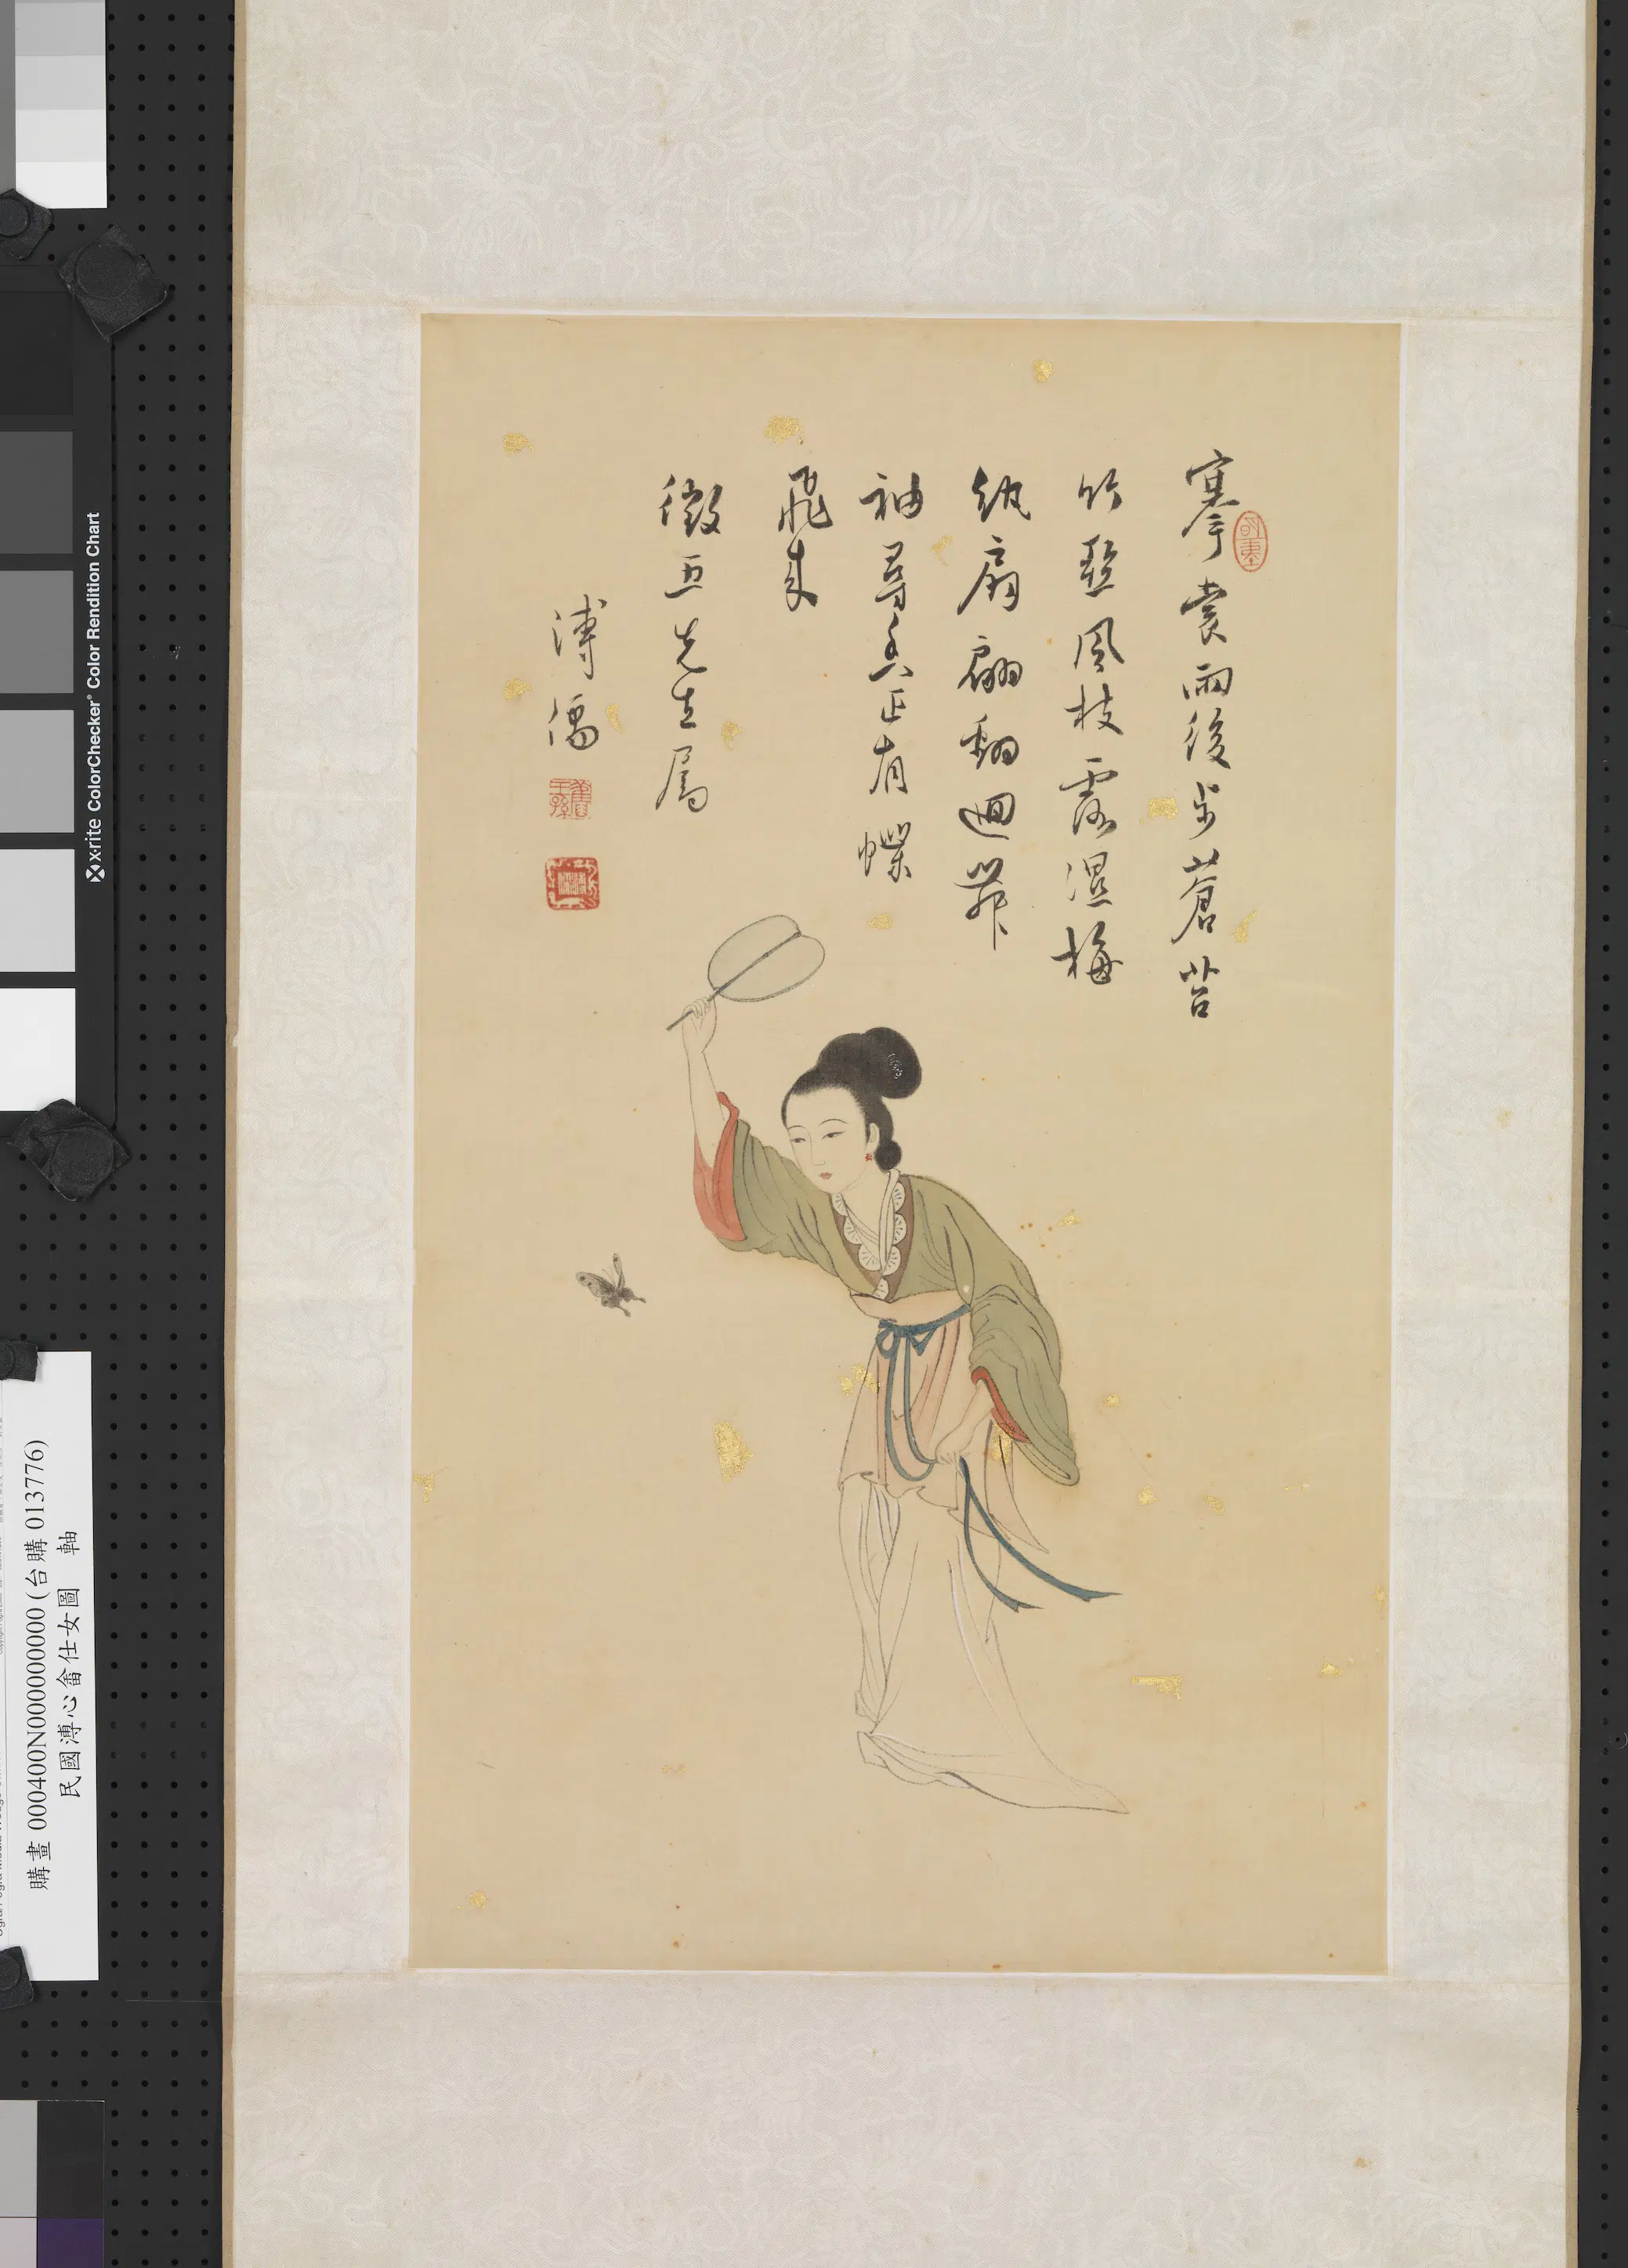 搴裳雨後步蒼苔
竹壓風枝露濕梅
紈扇翩翻迴舞
袖尋香正有蝶
飛來
徵五先生屬
溥儒
舊王孫
x·rite ColorChecker® Color Rendition Chart
購畫 000400N000000000 (台購 013776)
民國溥心畬仕女圖 軸